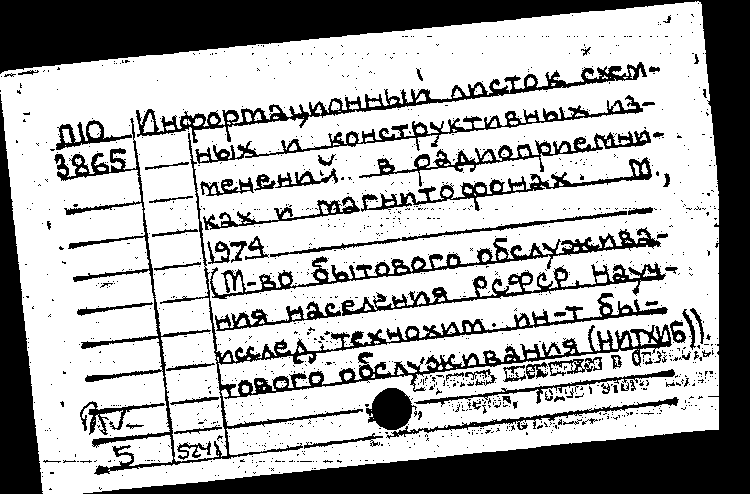 П10 Информационный листок схем-
3865 ных и конструктивных из-
менений в радиоприемни-
ках и магнитофонах. М.,
1974
(М-во бытового обслужива-
ния населения РСФСР. Науч-
исслед. технохим. ин-т бы-
тового обслуживания (НИТХИБ)).
5 5248